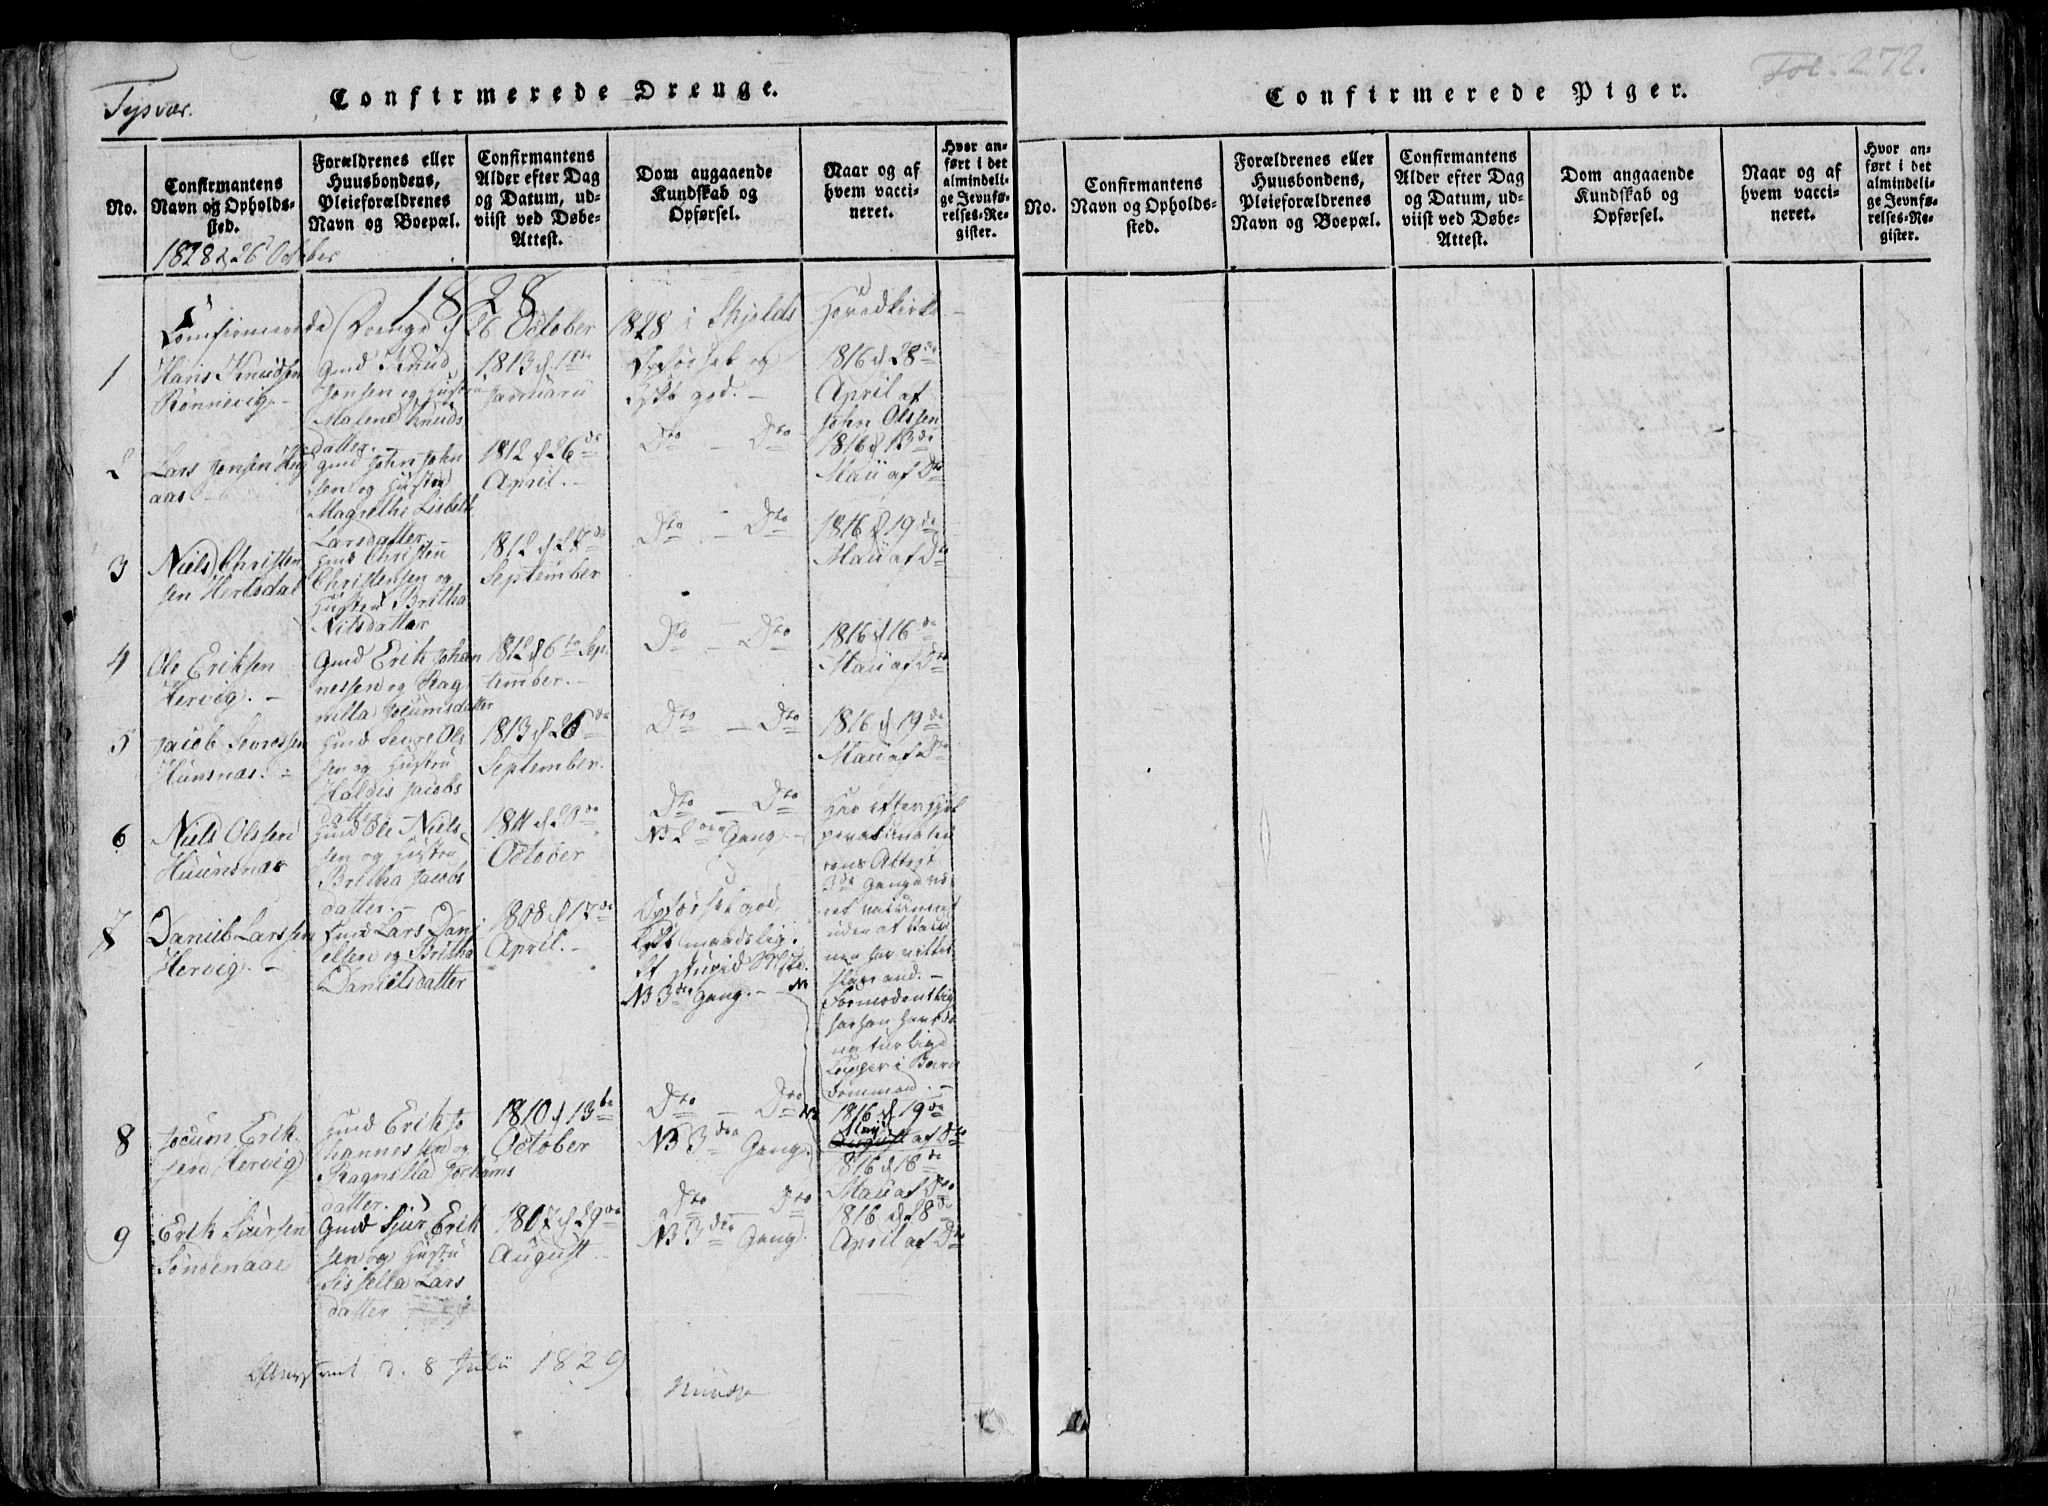 Tysvær.
Confirmerede Drenge.
No.
Confirmantens
Navn og Opholds-
sted.
Forældrenes eller
Huusbondens,
Pleieforældrenes
Navn og Boepæl.
Confirmantens
Alder efter Dag
og Datum, ud-
viist ved Døbe-
Attest.
Dom angaaende
Kundskab og
Opførsel.
Naar og af
hvem vacci-
neret.
Hvor an-
ført i det
almindeli-
ge Jevnfø-
relses-Re-
gister.
1828 d 26 October
1828
Confirmerede Drenge d 26 October 1828 i Skjolds Hovedkirke
1
Hans Knudsen
Rønnevig.-
Gmd Knud
Jonsen og Hustru
Malene Knuds
datter.-
1813 d 1ste
Januarii
Opførsel og
Flid god.-
1816 d 28de
April af
John Olssen
2
Lars Jonsen Hug
aas.-
Gmd John John
sen og Hustru
Magrethe Lisbeth
Larsdatter.-
1812 d 26de
April.-
Dto - Dto
1816 d 13de
Maii af Dto
3
Niels Christen
sen Hertsdal
Hmd Christen
Christensen og
Hustru Britha
Nilsdatter
1812 d 27de
September
Dto - Dto
1816 d 19de
Maii af Dto
4
Ole Eriksen
Hervig.-
Gmd Erik Johan
nessen og Rag
nilla Jocumsdatter
1812 d 6te Sep
tember.-
Dto - Dto
1816 d 16de
Maii af Dto
5
Jacob Sevressen
Hunsnæs.-
Hmd Sevre Ols
sen og Hustru
Haldis Jacobs
datter
1813 d 26de
September.
Dto - Dto
1816 d 19de
Maii af Dto
6
Niels Olssen
Huunsnæs
Hmd Ole Niels
sen og Hustru
Britha Jacobs
datter.-
1811 d 20de
October
Dto - Dto
NB 2den Gang.-
Attest
3de Gange
uden at
Formodentlig
har han havt
Kopper i Barn
dommen.-
7
Daniel Larssen
Hervig.-
Hmd Lars Dani
elsen og Britha
Danielsdatter
1808 d 17de
April.-
Opførsel god,
NB 3die Gang.-
8
Jocum Erik
sen Hervig
Hmd Erik Jo
hannessen og
Ragnilla Jochums
datter.
1810 d 13de
October
Dto - Dto
NB 3die Gang.
1816 d 19de
Maij
August af Dto
1816 d 18de
Maii af Dto
9
Erik Siursen
Søndenaae
Gmd Siur Erik
sen og Hustru
Sissella Lars
datter
1807 d 29de
August
Dto - Dto
NB 3die Gang.
1816 d 28de
April af Dto
d. 8 Julii 1829
Fol. 272.
Confirmerede Piger.
No.
Confirmantens
Navn og Opholds-
sted.
Forældrenes eller
Huusbondens,
Pleieforældrenes
Navn og Boepæl.
Confirmantens
Alder efter Dag
og Datum, ud-
viist ved Døbe-
Attest.
Dom angaaende
Kundskab og
Opførsel.
Naar og af
hvem vacci-
neret.
Hvor an-
ført i det
almindeli-
ge Jevnfø-
relses-Re-
gister.